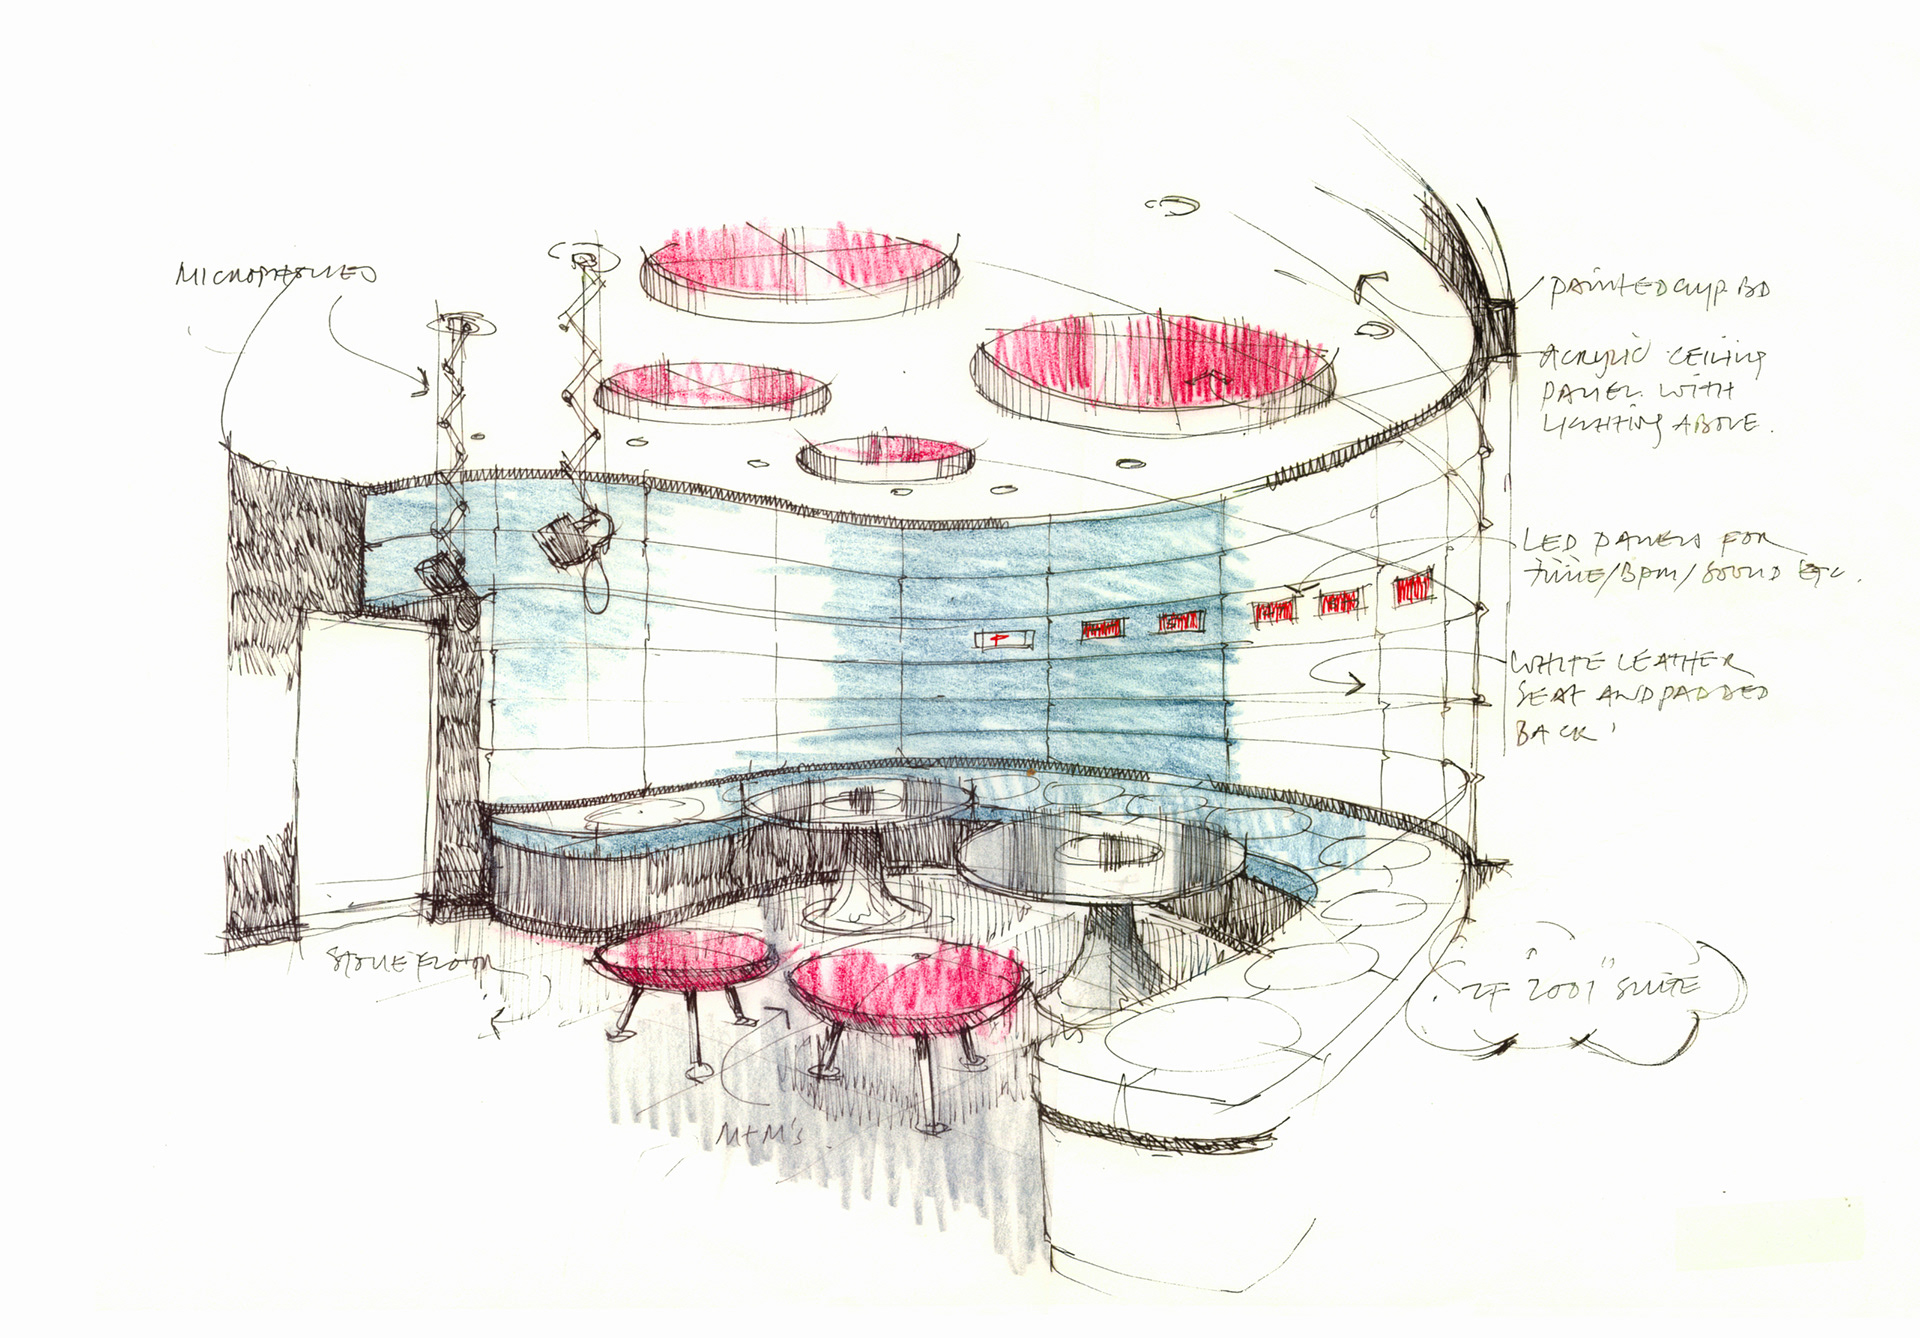 MICROPHONES
PAINTED GYP BD
ACRYLIC CEILING
PANEL WITH
LIGHTING ABOVE.
LED PANELS FOR
TIME/BPM/SOUND ETC.
WHITE LEATHER
SEAT AND PADDED
BACK
STONE FLOOR
"2001" SUITE
M+M's